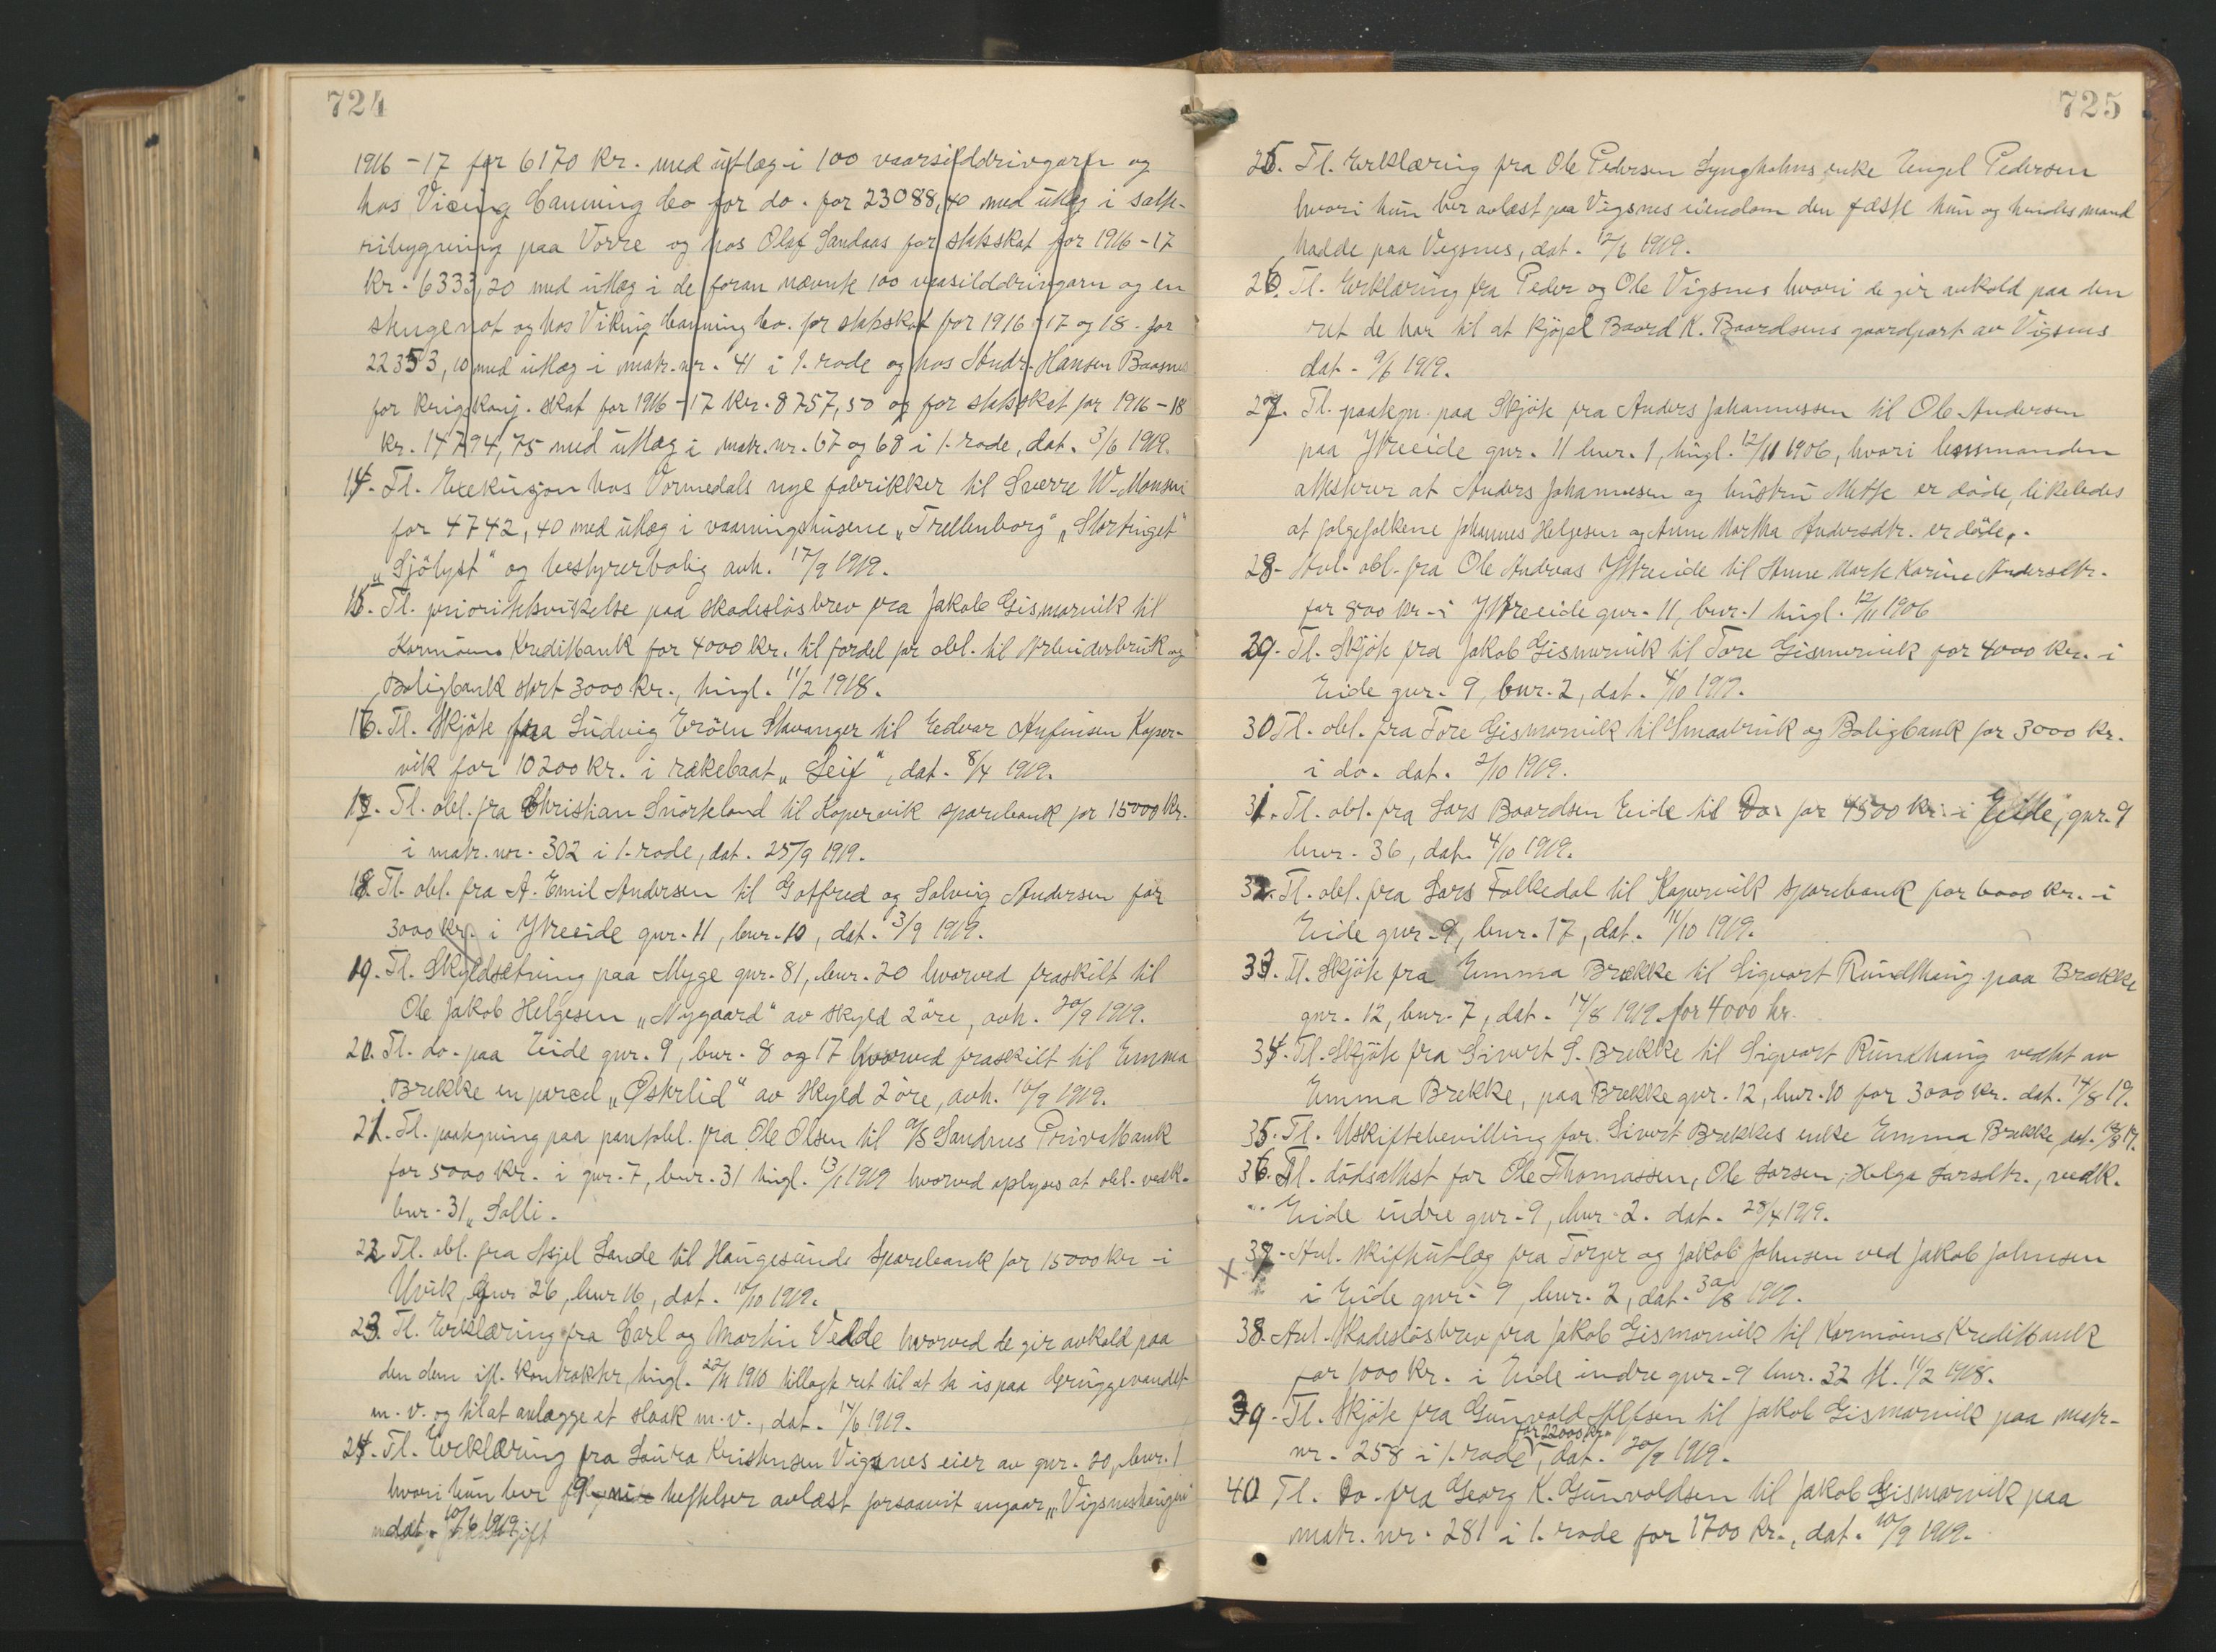 724
1916-17 for 6170 kr. med utlæg i 100 vaarsilddrivgarn og
hos Viking Canning Co for do. for 23088,40 med utlæg i salte-
ribygning paa Vorre og hos Olaf Sandaas for statsskat for 1916-17
kr. 6333,20 med utlæg i de foran nævnte 100 vaarsilddrivgarn og en
stngenot og hos Viking Canning Co. for statsskat for 1916-17 og 18 for
22353,10 med utlæg i matr. nr. 41 i 1. rode og hos Andr. Hansen Baasnes
for krigskonj. skat for 1916-17 kr. 8757,50 og for statsskat for 1916-18
kr. 14794,75 med utlæg i matr. nr. 67 og 68 i 1. rode, dat. 3/6 1919.
14. Tl. Exekusjon hos Vormedals nye fabrikker til Sverre W. Monsen
for 4742,40 med utlæg i vaaningshusene „Trellenborg" „Stortinget"
„Sjölyst" og bestyrerbolig avh. 17/9 1919.
15. Tl. prioritetsvikelse paa skadeslösbrev fra Jakob Gismarvik til
Karmöens Kreditbank for 4000 kr. til fordel for obl. til Arbeiderbruk og
Boligbank stort 3000 kr., tingl. 11/2 1918.
16. Tl. Skjöte fra Ludvig Eröen Stavanger til Edvar Anfinsen Koper-
vik for 10200 kr. i rækebaat „Leif", dat. 8/4 1919.
17. Tl. obl. fra Christian Snörteland til Kopervik sparebank for 15000 kr.
i matr. nr. 302 i 1. rode, dat. 25/9 1919.
18. Tl. obl. fra A. Emil Andersen til Gotfred og Solveig Andersen for
3000 kr. i Ytreeide gnr. 11, bnr. 10, dat. 3/9 1919.
19. Tl. Skyldsetning paa Myge gnr. 81, bnr. 20 hvorved fraskilt til
Ole Jakob Helgesen „Nygaard" av skyld 2 öre, avh. 20/9 1919.
20. Tl. do. paa Eide gnr. 9, bnr. 8 og 17 hvorved fraskilt til Emma
Brekke en parcel „Østerlid" av skyld 2 öre, avh. 10/9 1919.
21. Tl. paategning paa pantobl. fra Ole Olsen til A/S Sandnes Privatbank
for 5000 kr. i gnr. 7, bnr. 31 tingl. 13/1 1919 hvorved oplyses at obl. vedk.
bnr. 31 „Solli.
22. Tl. obl. fra Aksel Sande til Haugesunds Sparebank for 15000 kr i
Utvik, gnr 26, bnr 16, dat. 10/10 1919.
23. Tl. Erklæring fra Carl og Martin Velde hvorved de gir avkald paa
den dem ifl. kontrakter, tingl. 22/11 1910 tillagte ret til at ta is paa Gruggevandet
m. v. og til at anlægge et slaak m. v., dat. 14/6 1919.
24. Tl. Erklæring fra Laura Kristensen Vigsnes eier av gnr. 20, bnr. 1
hvori hun ber 9 heftelser avlæst forsaavit angaar „Vigsneshaugen"
dat. 10/6 1919

725
25. Tl. Erklæring fra Ole Pedersen Lyngholms enke Engel Pedersen
hvori hun ber avlæst paa Vigsnes eiendom den fæste hun og hendes mand
hadde paa Vigsnes, dat. 12/6 1919.
26. Tl. Erklæring fra Peder og Ole Vigsnes hvori de gir avkald paa den
ret de har til at kjöpe Baard K. Baardsens gaardpart av Vigsnes
dat. 9/6 1919.
27. Tl. paategn. paa Skjöte fra Anders Johannessen til Ole Andersen
paa Ytreeide gnr. 11 bnr. 1, tingl. 12/11 1906, hvori lensmanden
attesterer at Anders Johannesen og hustru Mette er döde, likeledes
at folgefolkene Johannes Helgesen og Anne Martha Andersdtr. er döde.
28. Avl. obl. fra Ole Andreas Ytreeide til Anne Marte Karine Andersdtr.
for 800 kr. i Ytreeide gnr. 11, bnr. 1 tingl. 12/11 1906
29. Tl. Skjöte fra Jakob Gismarvik til Tore Gismarvik for 4000 kr. i
Eide gnr. 9, bnr. 2, dat. 4/10 1919.
30 Tl. obl. fra Tore Gismarvik til Smaabruk og Boligbank for 3000 kr.
i do. dat. 2/10 1919.
31. Tl. obl. fra Lars Baardsen Eide til Do. for 4500 kr. i Eide, gnr. 9
bnr. 36, dat. 4/10 1919.
32. Tl. obl. fra Lars Falkedal til Kopervik sparebank for 6000 kr. i
Eide gnr 9, bnr. 17, dat. 11/10 1919.
33. Tl. Skjöte fra Emma Brække til Sigvart Rundhaug paa Brække
gnr. 12, bnr. 7, dat. 14/8 1919. for 4000 kr.
34. Tl. Skjöte fra Sivert S. Brekke til Sigvart Rundhaug vedtat av
Emma Brekke, paa Brekke gnr. 12, bnr. 10 for 3000 kr. dat. 14/8 19.
35. Tl. Uskiftebevilling for Sivert Brekkes enke Emma Brekke, dat. 18/8 19.
36. Tl. dödsattest for Ole Thomassen, Ole Larsen, Helga Larsdtr., vedk.
Eide indre gnr. 9, bnr. 2. dat. 28/4 1919.
x 37. Avl. skifteutlæg fra Torger og Jakob Johnsen ved Jakob Johnsen
i Eide gnr. 9, bnr. 2, dat. 30/8 1919.
38. Avl. Skadeslösbrev fra Jakob Gismarvik til Karmöens Kreditbank
for 1000 kr. i Eide indre gnr. 9 bnr. 32 tl. 11/2 1918.
39. Tl. Skjöte fra Gunvald Nilsen til Jakob Gismarvik paa matr-
nr. 258 i 1. rode for 22000 kr., dat. 20/9 1919.
40 Tl. Do. fra Georg K. Gunvaldsen til Jakob Gismarvik paa
matr. nr. 281 i 1. rode for 1700 kr., dat. 10/9 1919.